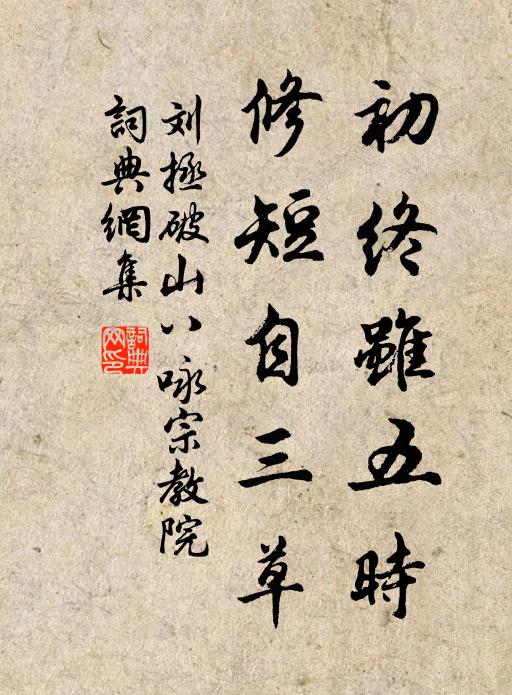 初终雖五時
修短自三草
刘拯破山八咏宗教院
詞典網集
詞典
网印